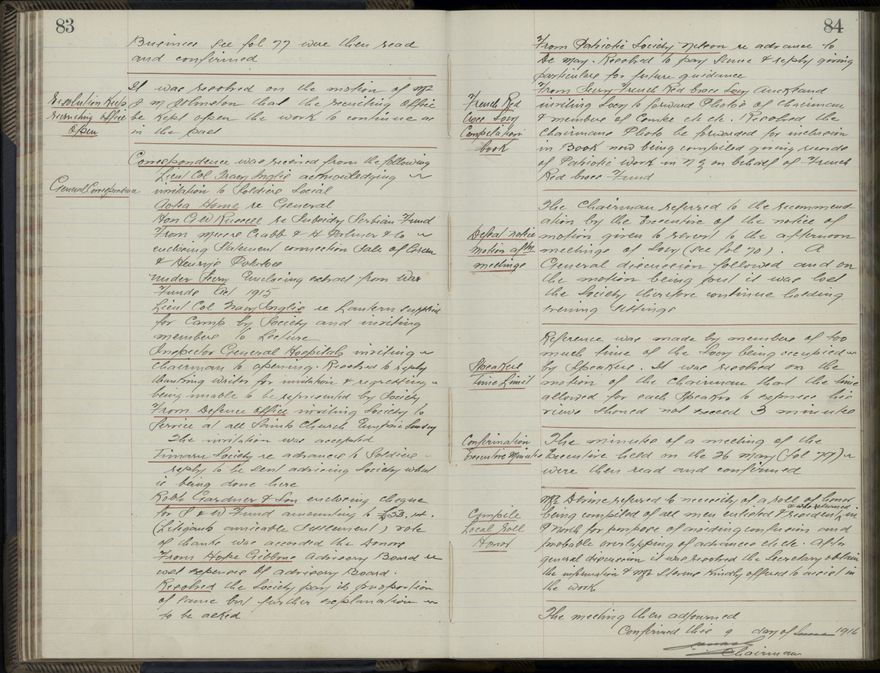 83
Business see fol 77 were then read
and confirmed
Resolution Keep
recruiting office
Open
It was resolved on the motion of Mr
J M Johnston that the recruiting office
be kept open the work to continue as
in the past
General Correspondence
Correspondence was received from the following
Lieut Col acknowledging
invitation to Soldiers Social
Aotea Home re General
Hon G W Russell re Subsidy Serbian Fund
From Messrs Crabb & H Palmer & Co
enclosing Statement connection Sale of
& Henrys Potatoes
Under Secy enclosing extract from War
Funds Act 1915
Lieut Col re Lantern supplied
for Camp by Society and inviting
members to Lecture
Inspector General Hospitals inviting
Chairman to opening. Resolved to reply
thanking writer for invitation & regretting
being unable to be represented by Society
From Defence Office inviting Society to
Service at all Saints Church Empire Sunday
The invitation was accepted
Timaru Society re advances to Soldiers
reply to be sent advising Society what
is being done here
Robt Gardner & Son enclosing cheque
for P & W Fund amounting to
(Litigants amicable Settlement) vote
of thanks was accorded the donors
From Hope Gibbons advisory Board re
expenses of advisory Board.
Resolved the Society pay its proportion
of same but further explanation
to be asked
84
From Patriotic Society Nelson re advance to
May. Resolved to pay same & reply giving
particulars for future guidance
French Red
Cross Socy
Compilation
book
From Secy French Red Cross Socy Auckland
inviting Socy to forward Photo of Chairman
& members of Comtee etc etc. Resolved the
Chairmans Photo be forwarded for inclusion
in Book now being compiled giving records
of Patriotic work in N Z on behalf of French
Red Cross Fund
Defeat notice
motion after
meetings
The Chairman referred to the recommend-
ation by the Executive of the notice of
motion given to revert to the afternoon
meetings of Socy (see fol 70). A
General discussion followed and on
the motion being put it was lost
the Society therefore continue holding
evening Sittings
Speakers
Time Limit
Reference was made by members of too
much time of the Socy being occupied
by Speakers. It was resolved on the
motion of the Chairman that the time
allowed for each Speaker to express his
views should not exceed 3 minutes
Confirmation
Executive Minutes
The minutes of a meeting of the
Executive held on the 26 May (fol 77)
were then read and confirmed
Compile
Local Roll
Honor
Mr referred to necessity of a roll of honor
being compiled of all men enlisted & resident in
& returned
P North for purpose of avoiding confusion and
probable overlapping of advances etc etc. After
general discussion it was resolved the Secretary obtain
the information & Mr kindly offered to assist in
the work
The meeting then adjourned
Confirmed this 9 day of 1916
Chairman